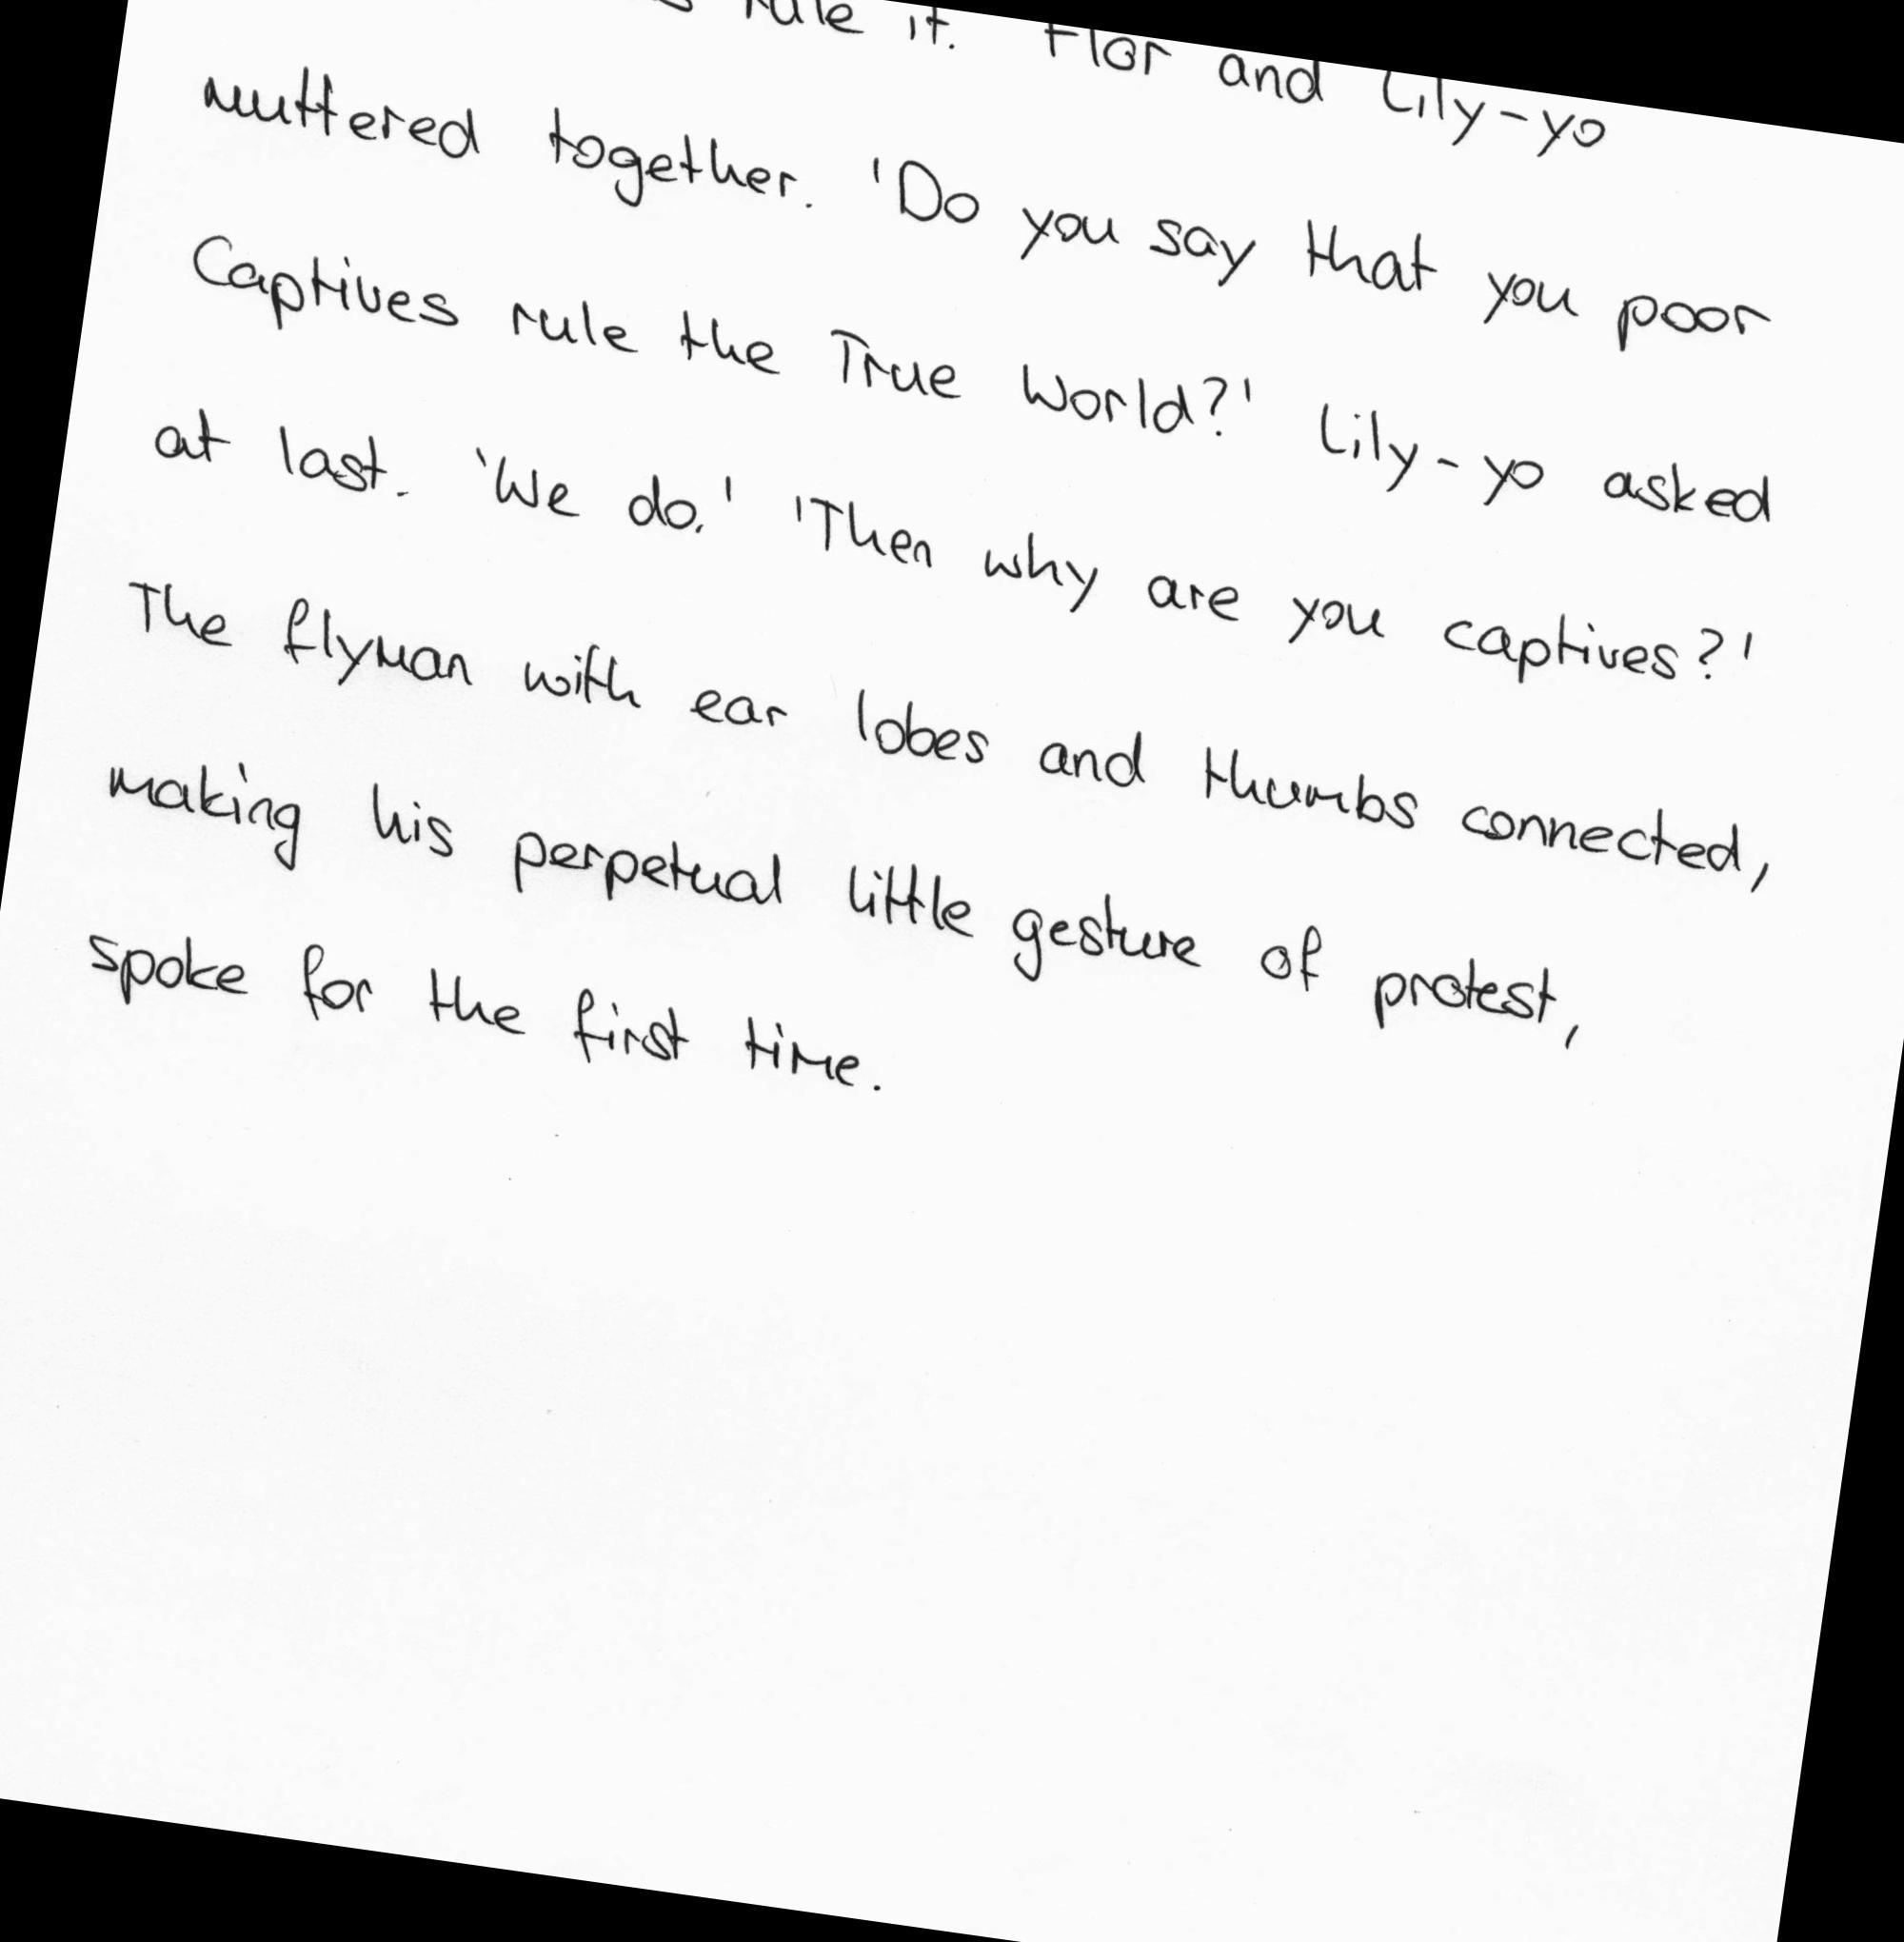 rule it. Flor and Lily-yo
muttered together. 'Do you say that you poor
Captives rule the True World?' Lily-yo asked
at last. 'We do.' 'Then why are you captives?'
The flyman with ear lobes and thumbs connected,
making his perpetual little gesture of protest,
spoke for the first time.